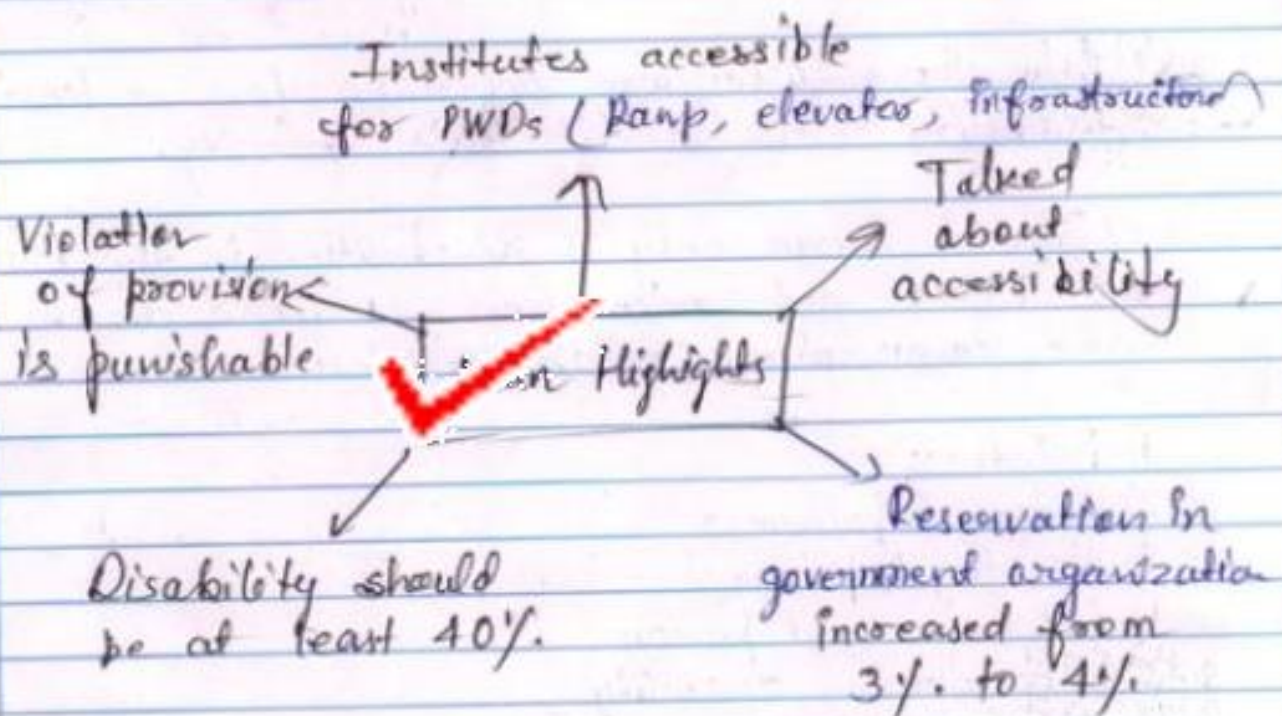 Institutes accessible
for PWDs (Ramp, elevator, infrastructure)
Talked
about
accessibility
Violation
of provision
is punishable
Highights
Disability should
be at least 40%.
Reservation in
government organization
increased from
3%. to 4%.